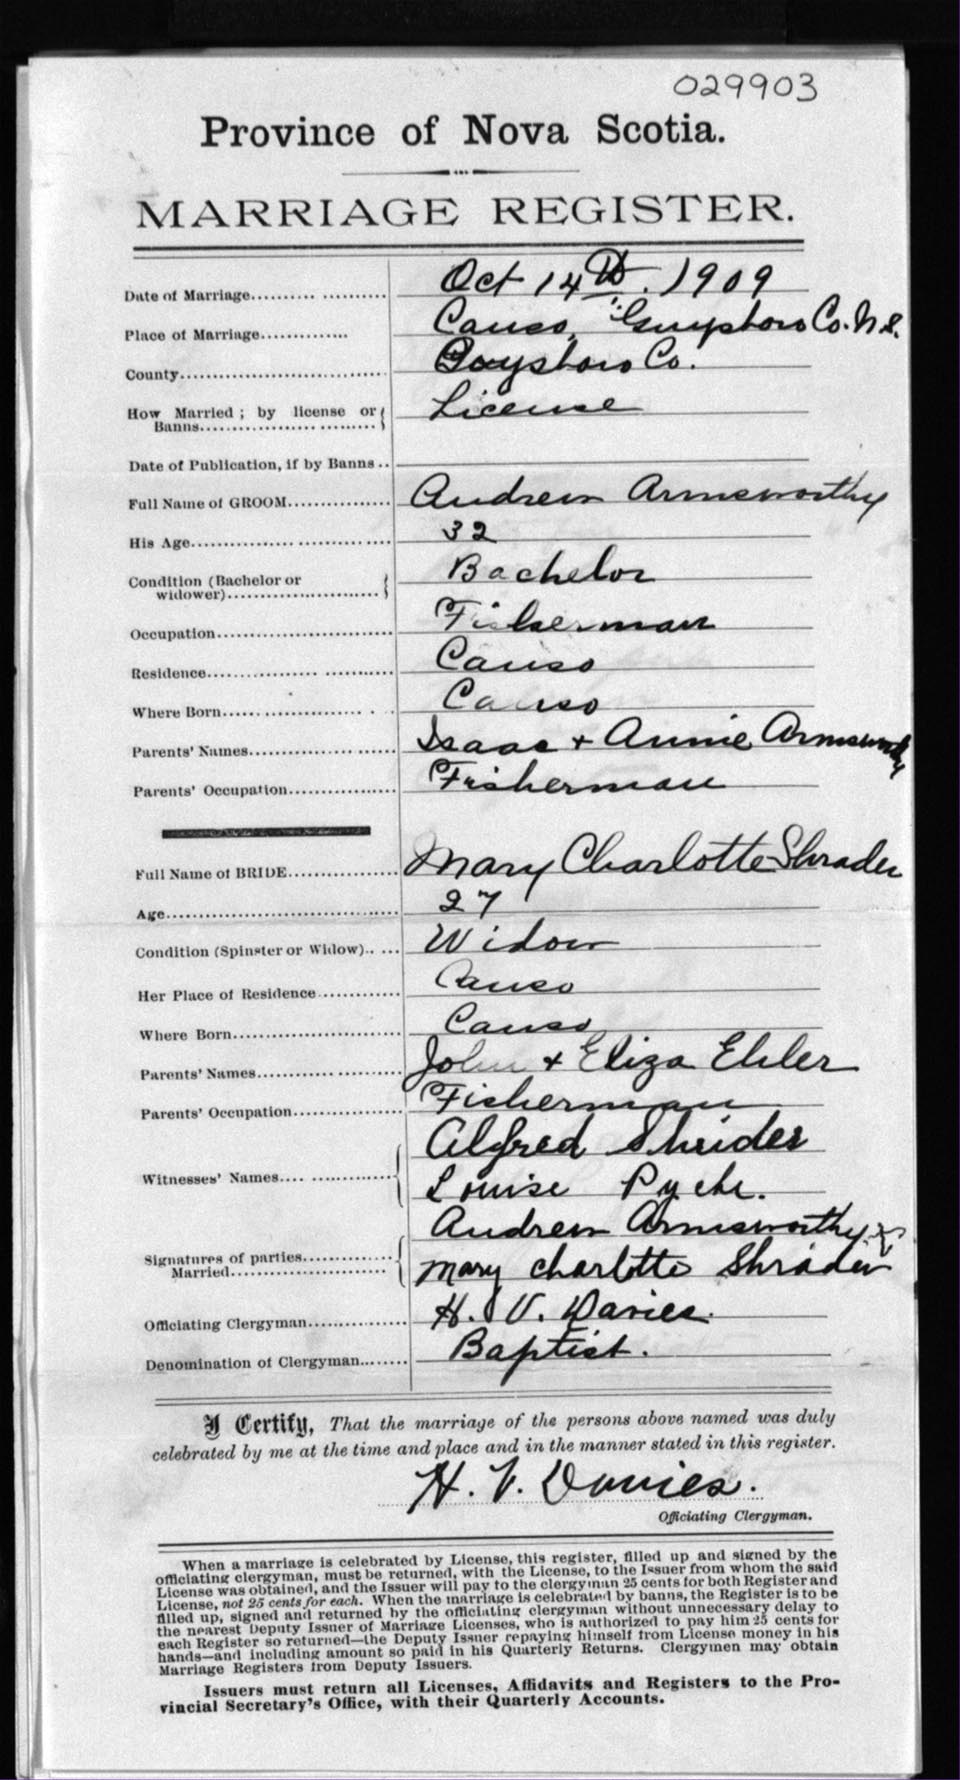 029903
Province of Nova Scotia.
MARRIAGE REGISTER.
Date of Marriage.................... Oct 14th. 1909
Place of Marriage.............. Canso, Guysboro Co. N.S.
County.............................. Guysboro Co.
How Married ; by license or { License
Banns.............................. }
Date of Publication, if by Banns ..
Full Name of GROOM............... Andrew Armsworthy
His Age.............................. 32
Condition (Bachelor or { Bachelor
widower)..........................
Occupation.......................... Fisherman
Residence........................... Canso
Where Born.......................... Canso
Parents' Names..................... Isaac + Annie Armsworthy
Parents' Occupation................ Fisherman
Full Name of BRIDE................ Mary Charlotte Shrader
Age.................................. 27
Condition (Spinster or Widow).. ... Widow
Her Place of Residence............ Canso
Where Born.......................... Canso
Parents' Names..................... John + Eliza Ehler
Parents' Occupation................ Fisherman
Alfred Shrider
Witnesses' Names.... ..............
Louise
Andrew Armsworthy
Signatures of parties..............
Married....................... Mary Charlotte Shrader
Officiating Clergyman.............. H. V. Davies.
Denomination of Clergyman........ Baptist.
I Certify, That the marriage of the persons above named was duly
celebrated by me at the time and place and in the manner stated in this register.
H. V. Davies.
Officiating Clergyman.
When a marriage is celebrated by License, this register, filled up and signed by the
officiating clergyman, must be returned, with the License, to the Issuer from whom the said
License was obtained, and the Issuer will pay to the clergyman 25 cents for both Register and
License, not 25 cents for each. When the marriage is celebrated by banns, the Register is to be
filled up, signed and returned by the officiating clergyman without unnecessary delay to
the nearest Deputy Issuer of Marriage Licenses, who is authorized to pay him 25 cents for
each Register so returned—the Deputy Issuer repaying himself from License money in his
hands—and including amount so paid in his Quarterly Returns. Clergymen may obtain
Marriage Registers from Deputy Issuers.
Issuers must return all Licenses, Affidavits and Registers to the Pro-
vincial Secretary's Office, with their Quarterly Accounts.